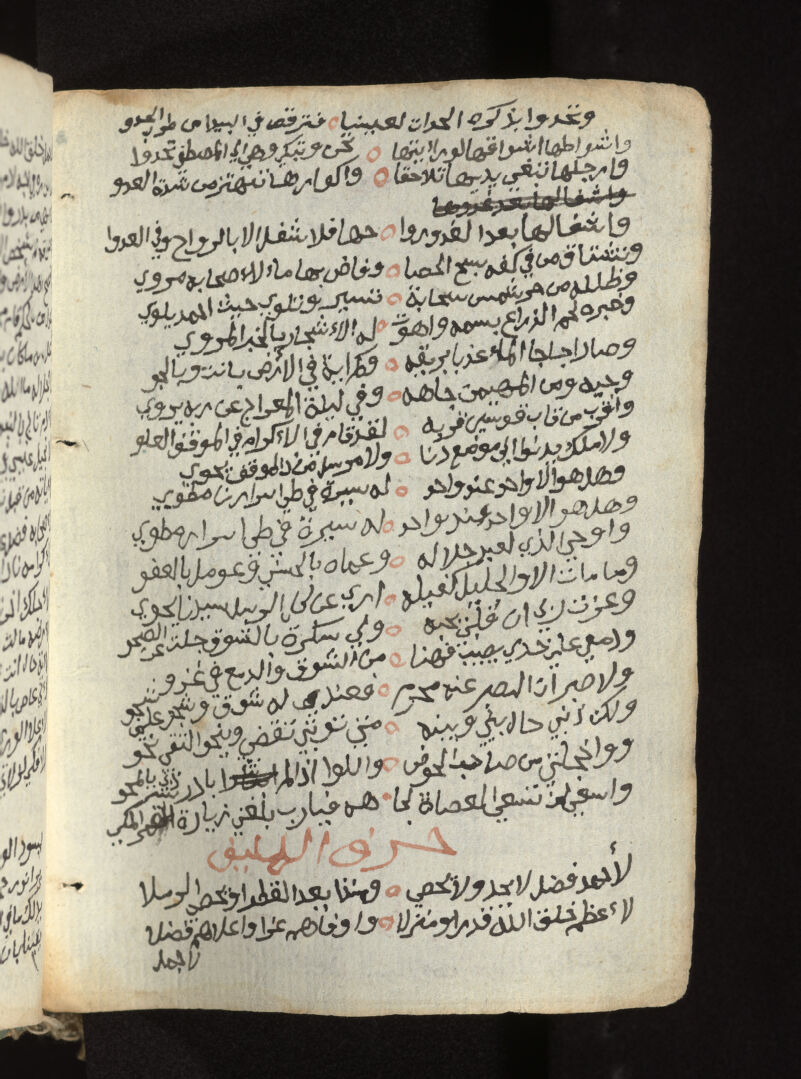 وتحدوا بذكره الحدات لعبينيا ○ فترقص في البيدا من طرب الحدو
واشواطها اشواقها لورايتها ○ نحن وتبكي وهي الي المصطفي تحدوا
وارجلها تبغي يديها تلاحقا ○ واكوارها تهتز من شدة العدو
واشغالها بعد غدوها
واشغالها بعد الغدوروا ○ حها فلا شغل الا بالرواح وفي الغدوا
وتشتاق من في كفه سبح الحصا ○ وفاض بها ماء لاصحابه مروي
وظلله من حر شمس سحابة ○ تسير وتلوي حيث احمد يلوي
وخبره لحم الذراع بسمه واهوت ○ له الاشجار بالخبر المروي
وصار اجاجا الماء عذبا بريقه ○ وكم اية في الأرض بانت وبالجو
وجيه ومن المهيمن جاهه ○ وفي ليلة المعراج عن ربه يروي
واقرب من قاب قوسين قربه ○ لقد قام في الاكرام في الموقف العلو
ولا ملك يدنوا الي موضع دنا ○ ولا مرسل من ذا الموقف يحوي
وهل هو الا واحد عند واحد ○ له سيرة في طي اسرارنا مطوي
وهل هو الا واحد عند واحد ○ له سيرة في طي اسراره مطوي
واوحي الذي لعبد جلاله ○ وعماه بالحسني وعومل بالعفو
وما مات الا والجليل كفيله ○ اري عن لكل الرسل سيدنا يحوي
وعزت ربي ان قلبي يحبه ○ ولي سكرة بالشوق جلت عن الصحو
ودمعي علي خدي يصب فهنا ○ من الشوق والدمع في غزو
ولا صبر ان البصر عنه محرم ○ فعندي له شوق وشجو علي شجو
ولكن ذنبي حال بيني وبينه ○ متي توبتي تقضي وينحو التقي نحو
وواخجلتي من صاحب الحوض ○ واللوا اذا لم ابادر بالمحو
واسعي كما تسعي العصاة لجا ○ هه فيارب بلغني زيارة المكي
حرف اللام الف
لأحمد فضل لا يحد ولا يحصي ○ ومن ذا يعد القطر او يحصي الرملا
لاعظم خلق الله قدرا ومنزلا ○ واوفاهم عزا واعلاهم فضلا
لاجمل